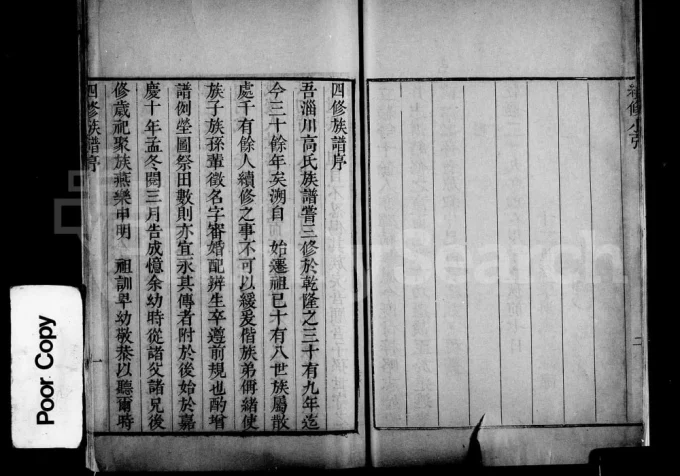 續修小引
二
四修族譜序
吾淄川高氏族譜嘗三修於乾隆之三十有九年迄
今三十餘年矣溯自 始遷祖已十有八世族屬散
處千有餘人續修之事不可以緩爰偕族弟傅緒使
族子族孫輩徵名字審婚配辨生卒遵前規也酌增
譜例塋圖祭田數則亦宜永其傳者附於後始於嘉
慶十年孟冬閱三月告成憶余幼時從諸父諸兄後
修歲祀聚族燕樂申明 祖訓卑幼敬恭以聽爾時
四修族譜序
一
Poor Copy